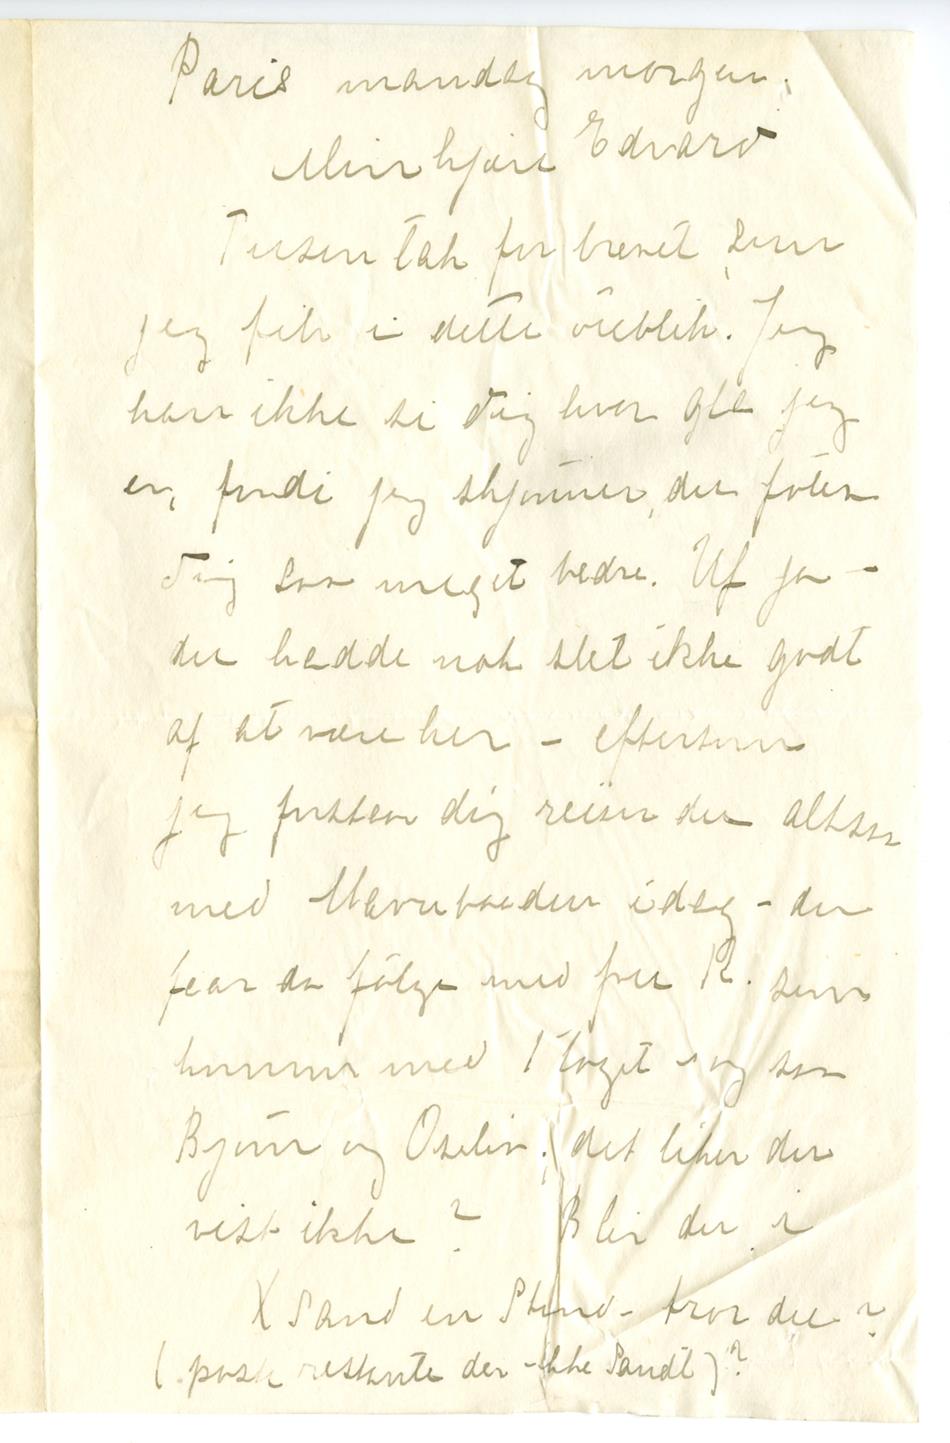 Paris mandag morgen.
Min kjære Edvard
Tusen tak for brevet, som
jeg fik i dette öieblik. Jeg
kan ikke si dig hvor gla jeg
er, fordi jeg skjönner, du föler
dig saa meget bedre. Uf ja –
du hadde nok slet ikke godt
af at være her – eftersom
jeg forstaar dig reiser du altsaa
med Havrebaaden idag – du
faar da følge med fru R. som
kommer med 1 toget – og som
Björn og Oselio. det liker du
vist ikke? Blir du i
X Sand en Stund – tror du?
(poste restante der – ikke Sandt)?